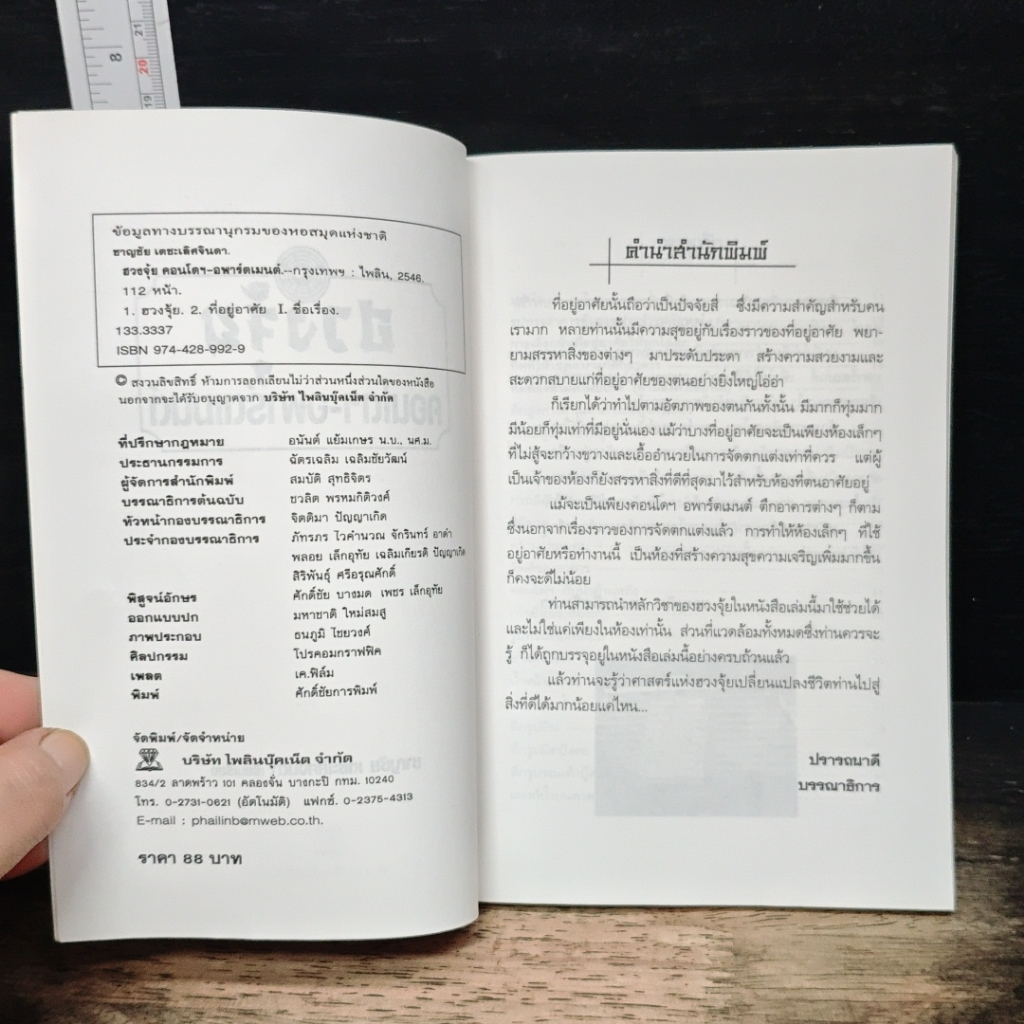 8
21
20
19
ข้อมูลทางบรรณานุกรมของหอสมุดแห่งชาติ
ชาญชัย เดชะเลิศจินดา.
ฮวงจุ้ย คอนโดฯ-อพาร์ตเมนต์.--กรุงเทพฯ : ไพลิน, 2546.
112 หน้า.
1. ฮวงจุ้ย. 2. ที่อยู่อาศัย I. ชื่อเรื่อง.
133.3337
ISBN 974-428-992-9
© สงวนลิขสิทธิ์ ห้ามการลอกเลียนไม่ว่าส่วนหนึ่งส่วนใดของหนังสือ
นอกจากจะได้รับอนุญาตจาก บริษัท ไพลินบุ๊คเน็ต จำกัด
ที่ปรึกษากฎหมาย อนันต์ แย้มเกษร น.บ., นศ.ม.
ประธานกรรมการ ฉัตรเฉลิม เฉลิมชัยวัฒน์
ผู้จัดการสำนักพิมพ์ สมบัติ สุทธิจิตร
บรรณาธิการต้นฉบับ ชวลิต พรหมกิติวงค์
หัวหน้ากองบรรณาธิการ จิตติมา ปัญญาเกิด
ประจำกองบรรณาธิการ ภัทรภร ไวคำนวณ จักรินทร์ อาด่ำ
พลอย เล็กอุทัย เฉลิมเกียรติ ปัญญาเกิด
สิริพันธุ์ ศรีอรุณศักดิ์
พิสูจน์อักษร ศักดิ์ชัย บางมด เพชร เล็กอุทัย
ออกแบบปก มหาชาติ ใหม่สมสู
ภาพประกอบ ธนภูมิ ไชยวงค์
ศิลปกรรม โปรคอมกราฟฟิค
เพลต เค.ฟิล์ม
พิมพ์ ศักดิ์ชัยการพิมพ์
จัดพิมพ์/จัดจำหน่าย
บริษัท ไพลินบุ๊คเน็ต จำกัด
834/2 ลาดพร้าว 101 คลองจั่น บางกะปิ กทม. 10240
โทร. 0-2731-0621 (อัตโนมัติ) แฟกซ์. 0-2375-4313
E-mail : phailinb@mweb.co.th.
ราคา 88 บาท
คำนำสำนักพิมพ์
ที่อยู่อาศัยนั้นถือว่าเป็นปัจจัยสี่ ซึ่งมีความสำคัญสำหรับคน
เรามาก หลายท่านนั้นมีความสุขอยู่กับเรื่องราวของที่อยู่อาศัย พยา-
ยามสรรหาสิ่งของต่างๆ มาประดับประดา สร้างความสวยงามและ
สะดวกสบายแก่ที่อยู่อาศัยของตนอย่างยิ่งใหญ่โอ่อ่า
ก็เรียกได้ว่าทำไปตามอัตภาพของตนกันทั้งนั้น มีมากก็ทุ่มมาก
มีน้อยก็ทุ่มเท่าที่มีอยู่นั่นเอง แม้ว่าบางที่อยู่อาศัยจะเป็นเพียงห้องเล็กๆ
ที่ไม่สู้จะกว้างขวางและเอื้ออำนวยในการจัดตกแต่งเท่าที่ควร แต่ผู้
เป็นเจ้าของห้องก็ยังสรรหาสิ่งที่ดีที่สุดมาไว้สำหรับห้องที่ตนอาศัยอยู่
แม้จะเป็นเพียงคอนโดฯ อพาร์ตเมนต์ ตึกอาคารต่างๆ ก็ตาม
ซึ่งนอกจากเรื่องราวของการจัดตกแต่งแล้ว การทำให้ห้องเล็กๆ ที่ใช้
อยู่อาศัยหรือทำงานนี้ เป็นห้องที่สร้างความสุขความเจริญเพิ่มมากขึ้น
ก็คงจะดีไม่น้อย
ท่านสามารถนำหลักวิชาของฮวงจุ้ยในหนังสือเล่มนี้มาใช้ช่วยได้
และไม่ใช่แค่เพียงในห้องเท่านั้น ส่วนที่แวดล้อมทั้งหมดซึ่งท่านควรจะ
รู้ ก็ได้ถูกบรรจุอยู่ในหนังสือเล่มนี้อย่างครบถ้วนแล้ว
แล้วท่านจะรู้ว่าศาสตร์แห่งฮวงจุ้ยเปลี่ยนแปลงชีวิตท่านไปสู่
สิ่งที่ดีได้มากน้อยแค่ไหน...
ปรารถนาดี
บรรณาธิการ